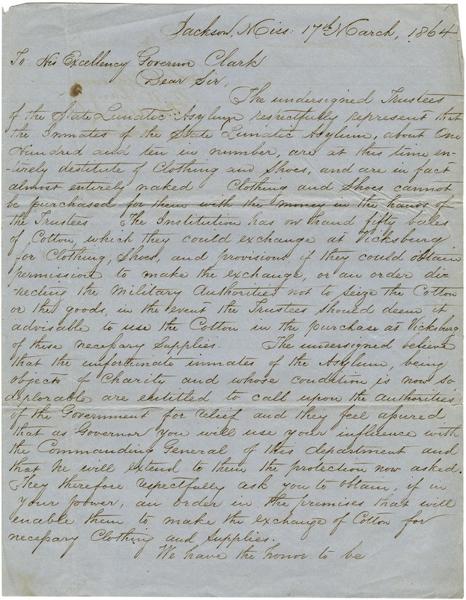 Jackson, Miss: 17th March, 1864
To His Excellency Governor Clark
Dear Sir,
The undersigned Trustees
of the State Lunatic Asylum respectfully represent that
the Inmates of the State Lunatic Asylum, about One
Hundred and ten in number, are at this time en-
-tirely destitute of Clothing and Shoes, and are in fact
almost entirely naked. Clothing and Shoes cannot
be purchased for them with the money in the hands of
the Trustees. The Institution has on hand fifty bales
of Cotton, which they could exchange at Vicksburg
for Clothing, Shoes, and provisions if they could obtain
permission to make the exchange, or an order di-
-recting the Military Authorities not to seize the Cotton
or the goods, in the event the Trustees should deem it
advisable to use the Cotton in the purchase at Vicksburg
of these necessary Supplies. The undersigned believe
that the unfortunate inmates of the Asylum, being
objects of Charity and whose condition is now so
deplorable are entitled to call upon the Authorities
of the Government for relief and they feel assured
that as Governor you will use your influence with
the Commanding General of this department and
that he will extend to them the protection now asked.
They therefore respectfully ask you to obtain, if in
your power, an order in the premises that will
enable them to make the exchange of Cotton for
necessary Clothing and Supplies.
We have the honor to be